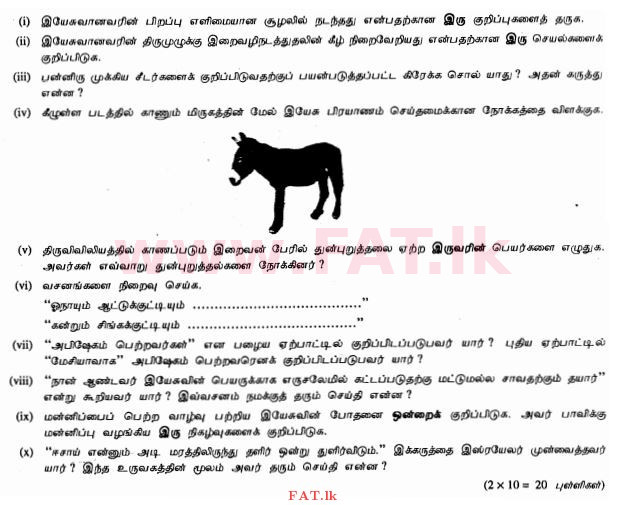 (i) இயேசுவானவரின் பிறப்பு எளிமையான சூழலில் நடந்தது என்பதற்கான இரு குறிப்புகளைத் தருக.
(ii) இயேசுவானவரின் திருமுழுக்கு இறைவழிநடத்துதலின் கீழ் நிறைவேறியது என்பதற்கான இரு செயல்களைக்
குறிப்பிடுக.
(iii) பன்னிரு முக்கிய சீடர்களைக் குறிப்பிடுவதற்குப் பயன்படுத்தப்பட்ட கிரேக்க சொல் யாது? அதன் கருத்து
என்ன?
(iv) கீழுள்ள படத்தில் காணும் மிருகத்தின் மேல் இயேசு பிரயாணம் செய்தமைக்கான நோக்கத்தை விளக்குக.
www.FAT.lk
(v) திருவிவிலியத்தில் காணப்படும் இறைவன் பேரில் துன்புறுத்தலை ஏற்ற இருவரின் பெயர்களை எழுதுக.
அவர்கள் எவ்வாறு துன்புறுத்தல்களை நோக்கினர்?
(vi) வசனங்களை நிறைவு செய்க.
"ஓநாயும் ஆட்டுக்குட்டியும் ........................................"
"கன்றும் சிங்கக்குட்டியும் ........................................"
(vii) "அபிஷேகம் பெற்றவர்கள்" என பழைய ஏற்பாட்டில் குறிப்பிடப்படுபவர் யார்? புதிய ஏற்பாட்டில்
"மேசியாவாக" அபிஷேகம் பெற்றவரெனக் குறிப்பிடப்படுபவர் யார்?
(viii) "நான் ஆண்டவர் இயேசுவின் பெயருக்காக எருசலேமில் கட்டப்படுதற்கு மட்டுமல்ல சாவதற்கும் தயார்"
என்று கூறியவர் யார்? இவ்வசனம் நமக்குத் தரும் செய்தி என்ன?
(ix) மன்னிப்பைப் பெற்ற வாழ்வு பற்றிய இயேசுவின் போதனை ஒன்றைக் குறிப்பிடுக. அவர் பாவிக்கு
மன்னிப்பு வழங்கிய இரு நிகழ்வுகளைக் குறிப்பிடுக.
(x) "ஈசாய் என்னும் அடி மரத்திலிருந்து தளிர் ஒன்று துளிர்விடும்." இக்கருத்தை இஸ்ரயேலர் முன்வைத்தவர்
யார்? இந்த உருவகத்தின் மூலம் அவர் தரும் செய்தி என்ன?
(2 × 10 = 20 புள்ளிகள்)
FAT.lk